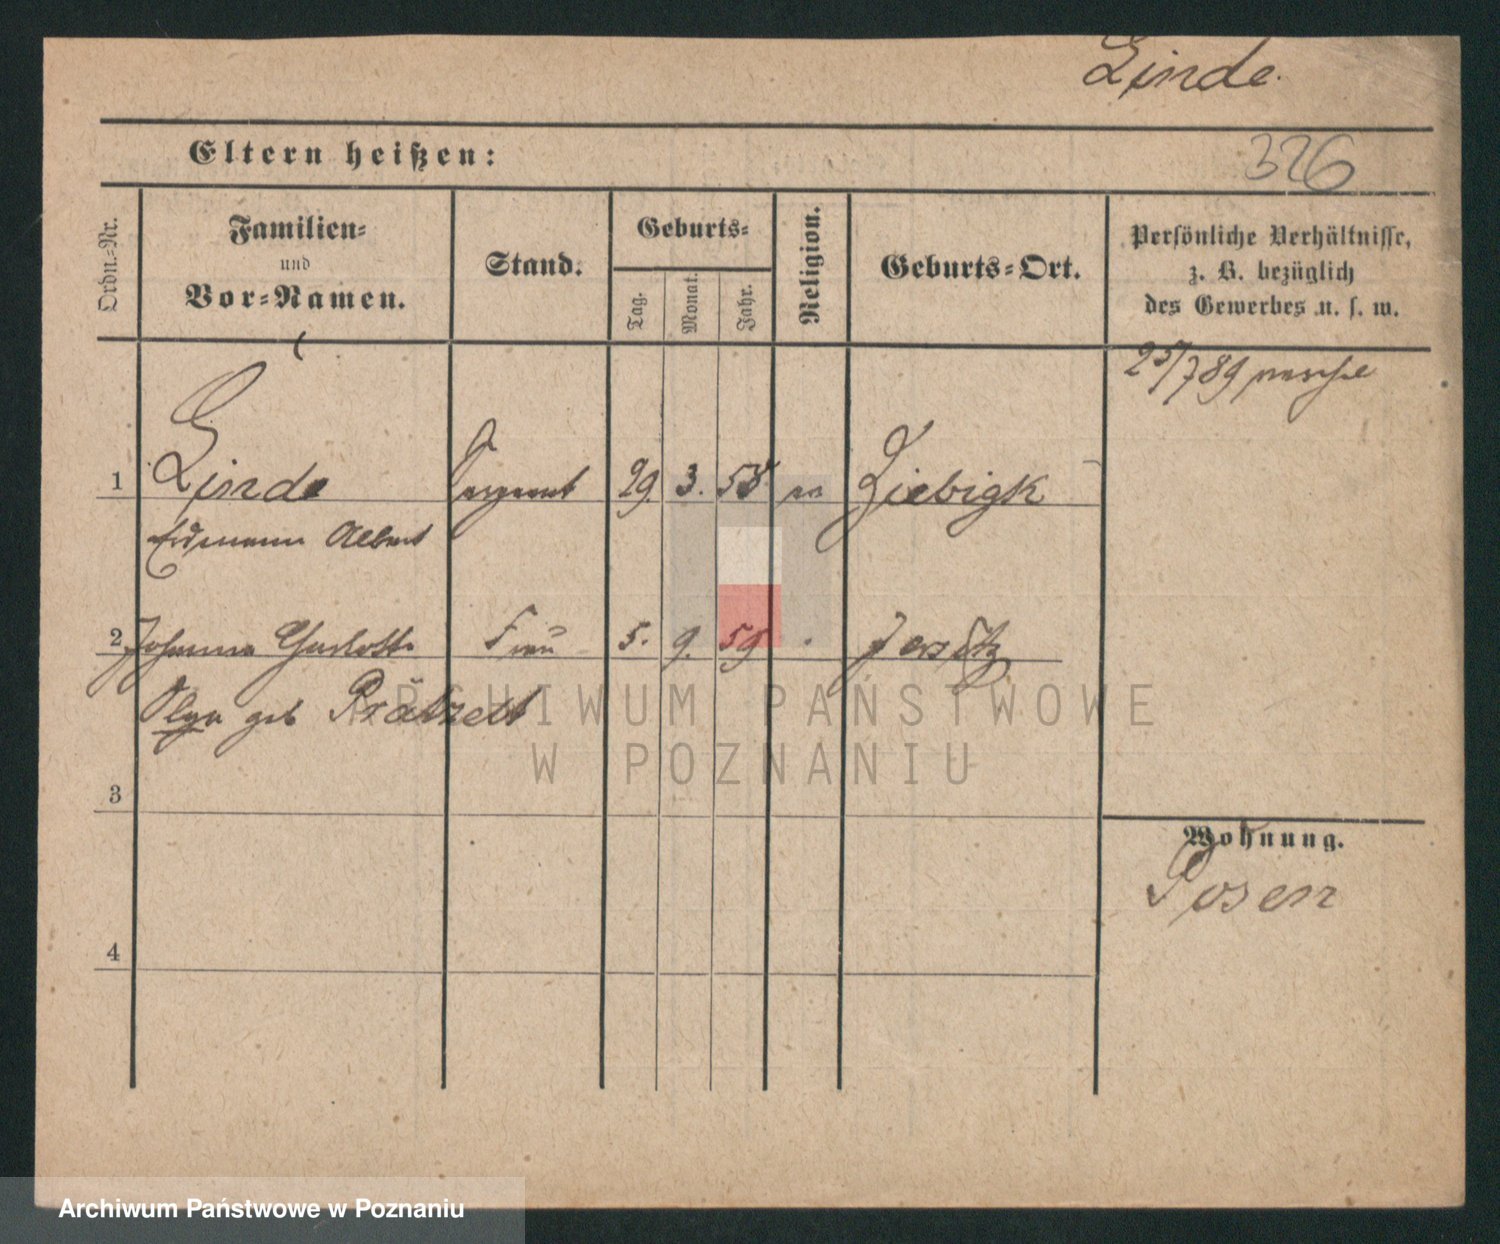 Linde.
Eltern heißen:
326
Ordn.-Nr.
Familien-
und
Vor-Namen.
Stand.
Geburts-
Tag.
Monat.
Jahr.
Religion.
Geburts-Ort.
Persönliche Verhältnisse,
z. B. bezüglich
des Gewerbes u. s. w.
25/7 89
1 Linde Sergeant 29. 3. 58 ev Ziebigk
Erdmann Albert
2 Johanna Charlotte Frau 5. 9. 59 Jersitz
Olga geb
3
4
Wohnung.
Posen
ARCHIWUM PAŃSTWOWE
W POZNANIU
Archiwum Państwowe w Poznaniu